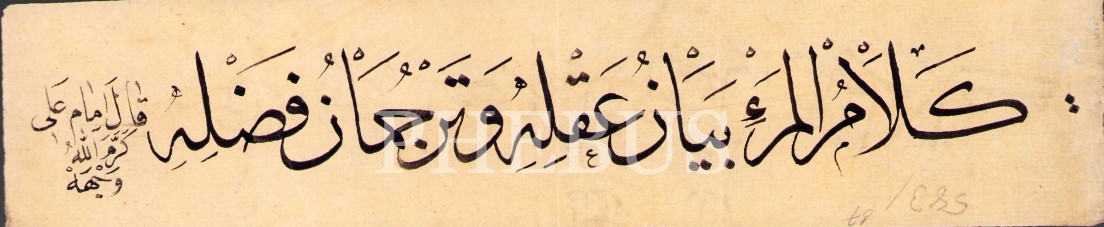 كَلَامُ الْمَرْءِ بَيَانُ عَقْلِهِ وَتَرْجُمَانُ فَضْلِهِ
قال امام علی
كرّم الله
وجهه
PHEBUS
583/